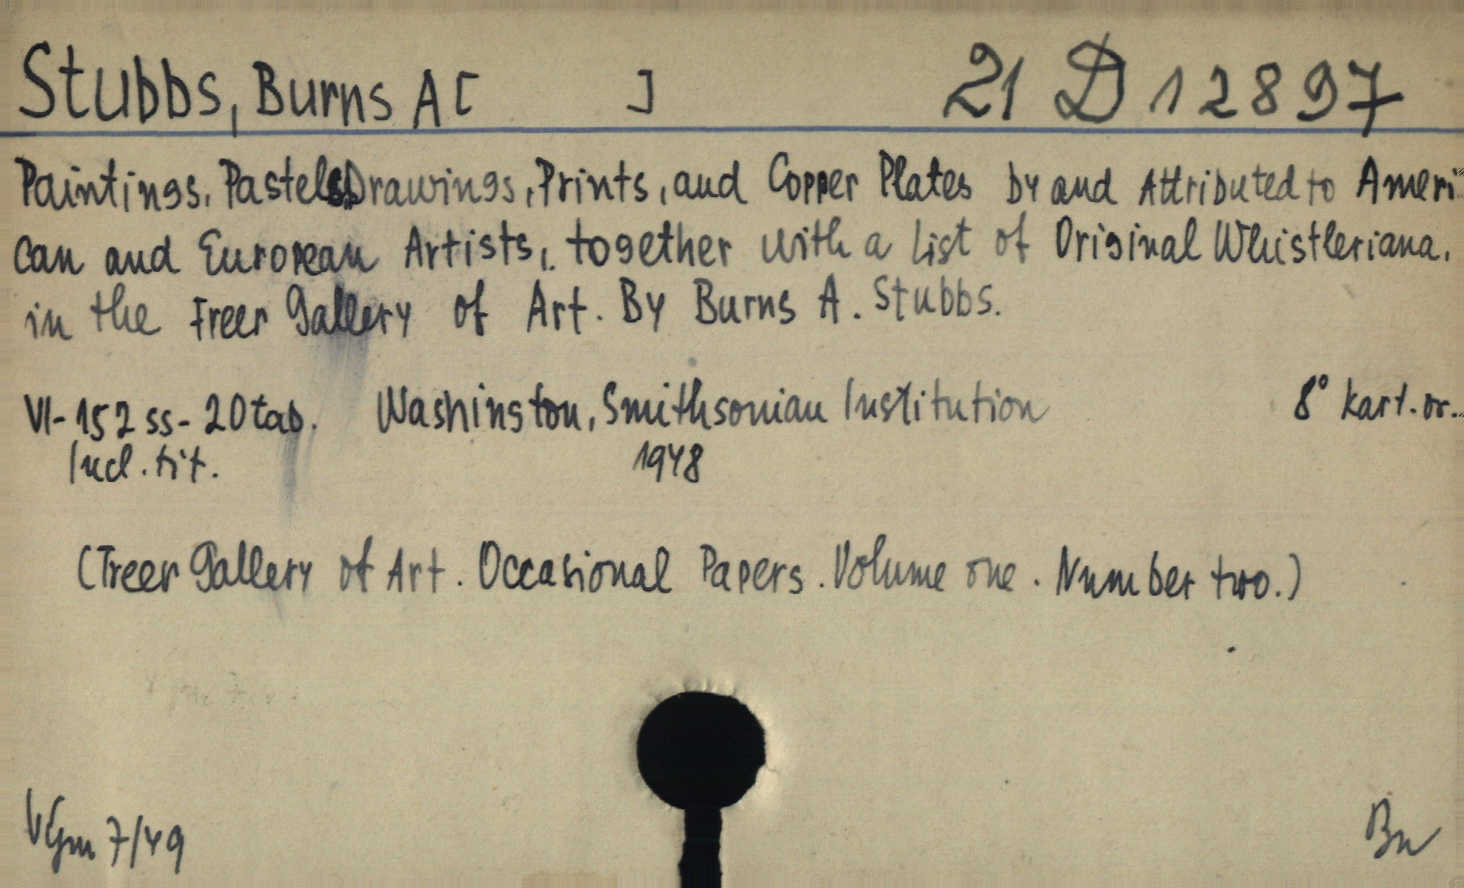 Stubbs, Burns A [ ] 21 D 12897
Paintings, Pastels, Drawings, Prints, and Copper Plates by and Attributed to Ameri
can and European Artists, together with a List of Original Whistleriana,
in the Freer Gallery of Art. By Burns A. Stubbs.
VI-152 ss - 20 tab. Washington, Smithsonian Institution 8° kart. or.
Incl. tit. 1948
(Freer Gallery of Art. Occasional Papers. Volume one. Number two.)
7/49